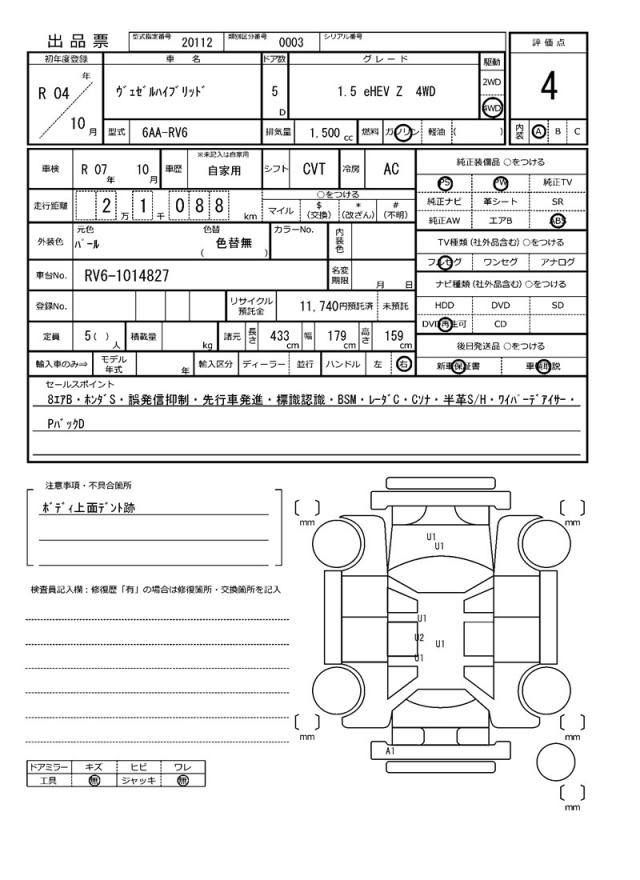 出品票 型式指定番号 20112 類別区分番号 0003 シリアル番号
評価点
4
内装 A B C
初年度登録 車名 ドア数 グレード 駆動
R 04 年 10 月
ヴェゼルハイブリッド 5 D 1.5 eHEV Z 4WD 2WD 4WD
型式 6AA-RV6 排気量 1.500 cc 燃料 ガソリン 軽油 ( )
車検 R 07 年 10 月 車歴 ※未記入は自家用 自家用 シフト CVT 冷房 AC
走行距離 2 万 1 千 0 8 8 km ○をつける
マイル $ (交換) * (改ざん) # (不明)
外装色 元色 パール 色替 ( 色替無 ) カラーNo. 内装色
車台No. RV6-1014827 名変期限 月 日
登録No. リサイクル預託金 11,740円預託済 未預託
定員 5( ) 人 積載量 kg 諸元 長さ 433 cm 幅 179 cm 高さ 159 cm
輸入車のみ⇒ モデル年式 年 輸入区分 ディーラー 並行 ハンドル 左 右
純正装備品 ○をつける
PS PW 純正TV
純正ナビ 革シート SR
純正AW エアB ABS
TV種類(社外品含む)○をつける
フルセグ ワンセグ アナログ
ナビ種類(社外品含む)○をつける
HDD DVD SD
DVD再生可 CD
後日発送品 ○をつける
新車保証書 車輌取説
セールスポイント
8エアB・ホンダS・誤発信抑制・先行車発進・標識認識・BSM・レーダC・Cソナ・半革S/H・ワイパーデアイサー・
PバックD
注意事項・不具合箇所
ボディ上面デント跡
検査員記入欄：修復歴「有」の場合は修復箇所・交換箇所を記入
ドアミラー キズ ヒビ ワレ
工具 無 ジャッキ 無
[ ] mm
[ ] mm
U1
U1
U1
U2
U1
U1
[ ] mm
[ ] mm
A1
[ ] mm